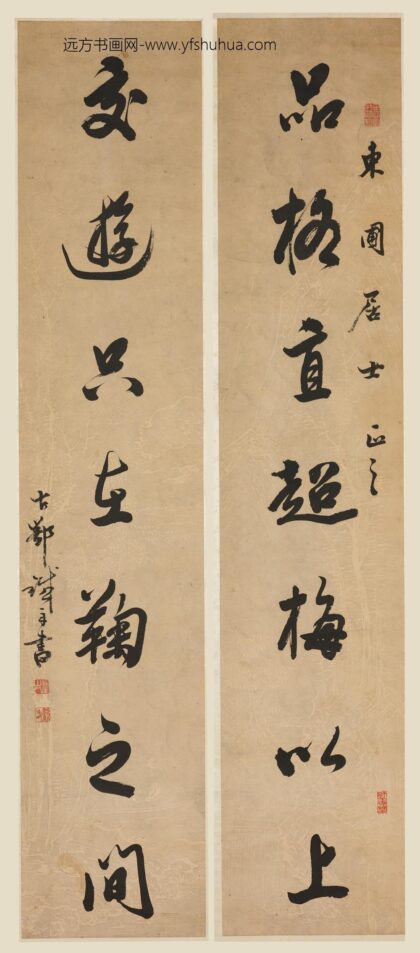 远方书画网-www.yfshuhua.com
東圃居士正之
品格直超梅以上
交遊只在鞠之間
書